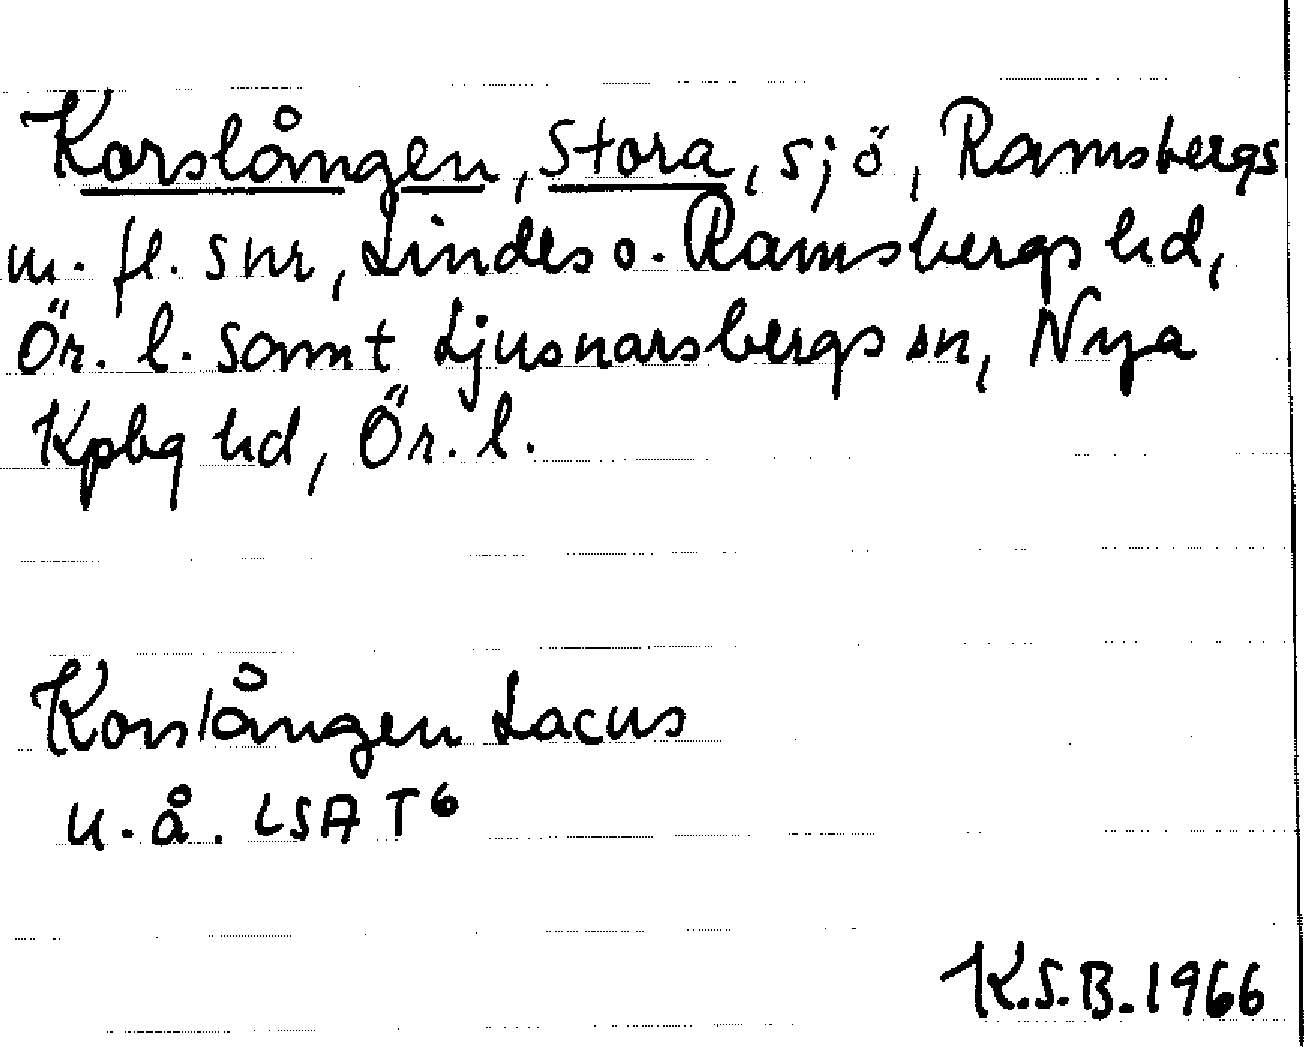 Korslången, Stora, sjö, Ramsbergs
m. fl. snr, Lindes o. Ramsbergs hd,
Ör. l. samt Ljusnarsbergs sn, Nya
Kpbg hd, Ör. l.
Korslången Lacus
u. å. LSA T6
K.S.B. 1966